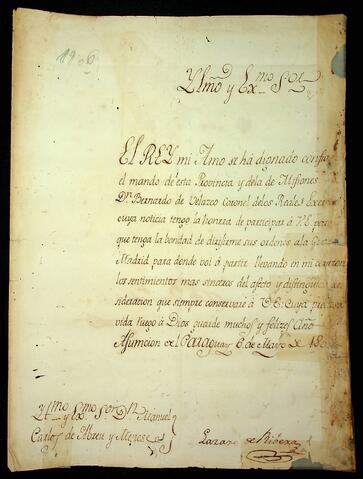 1906
Ylmõ y Exmo Sor
EL REY mi Amo se há dignado confiar
el mando de ésta Provincia y dela de Missiones
Dn. Bernardo de Velazco Coronel delos Reales Exercitos
cuya noticia tengo la honrra de participar à V.E. para
que tenga la bondad de dirijirme sus ordenes ala
Madrid para donde voi á partir llevando en mi corazon
los sentimientos mas sinceros del afecto y distinguida
sideracion que siempre conservaré à V.E. cuya preciosa
vida ruego à Dios guarde muchos y felizes Año
Assumcion del Paraguay 6 de Mayo de 180
Ylmo y Exmo Sor Dn Manuel
Carlos de Abreu y Meneses
Lazaro de Ribera